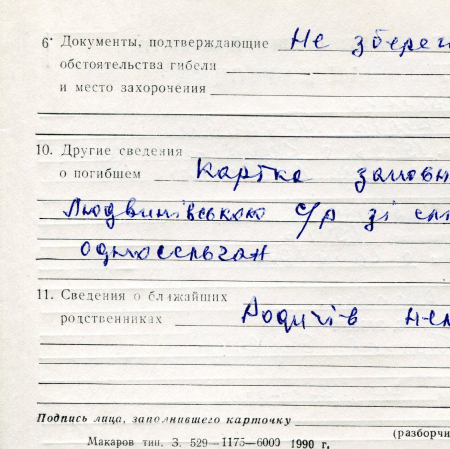 6· Документы, подтверждающие Не зберег
обстоятельства гибели
и место захорочения
10. Другие сведения
о погибшем Картка заповн
Людвинівською с/р зі сл
односельчан
11. Сведения о ближайших
родственниках Родичів нем
Подпись лица, заполнившего карточку
(разборчи
Макаров тип. З. 529—1175—6000 1990 г.